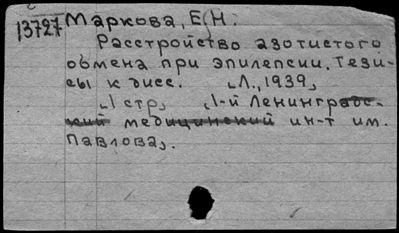 13727 Маркова, Е.Н.
Расстройство азотистого
обмена при эпилепсии. Тези-
сы к дисс. Л., 1939,
1 стр, 1-й Ленинградс-
кий медицинский ин-т им.
Павлова.